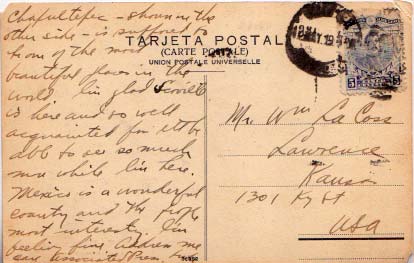 Chapultepec - shown on the
other side - is supposed to
be one of the most
beautiful places in the
world. I'm glad
is here and so well
acquainted for I'll be
able to see so much
more while I'm here.
Mexico is a wonderful
country and the people
most interestg. I'm
feelin fine. Address me
care Associated Press,
TARJETA POSTAL
(CARTE POSTALE)
UNION POSTALE UNIVERSELLE
MAY 19
5 5
Mr. Wm La Coss
Lawrence
Kansas
1301 Ky St
USA